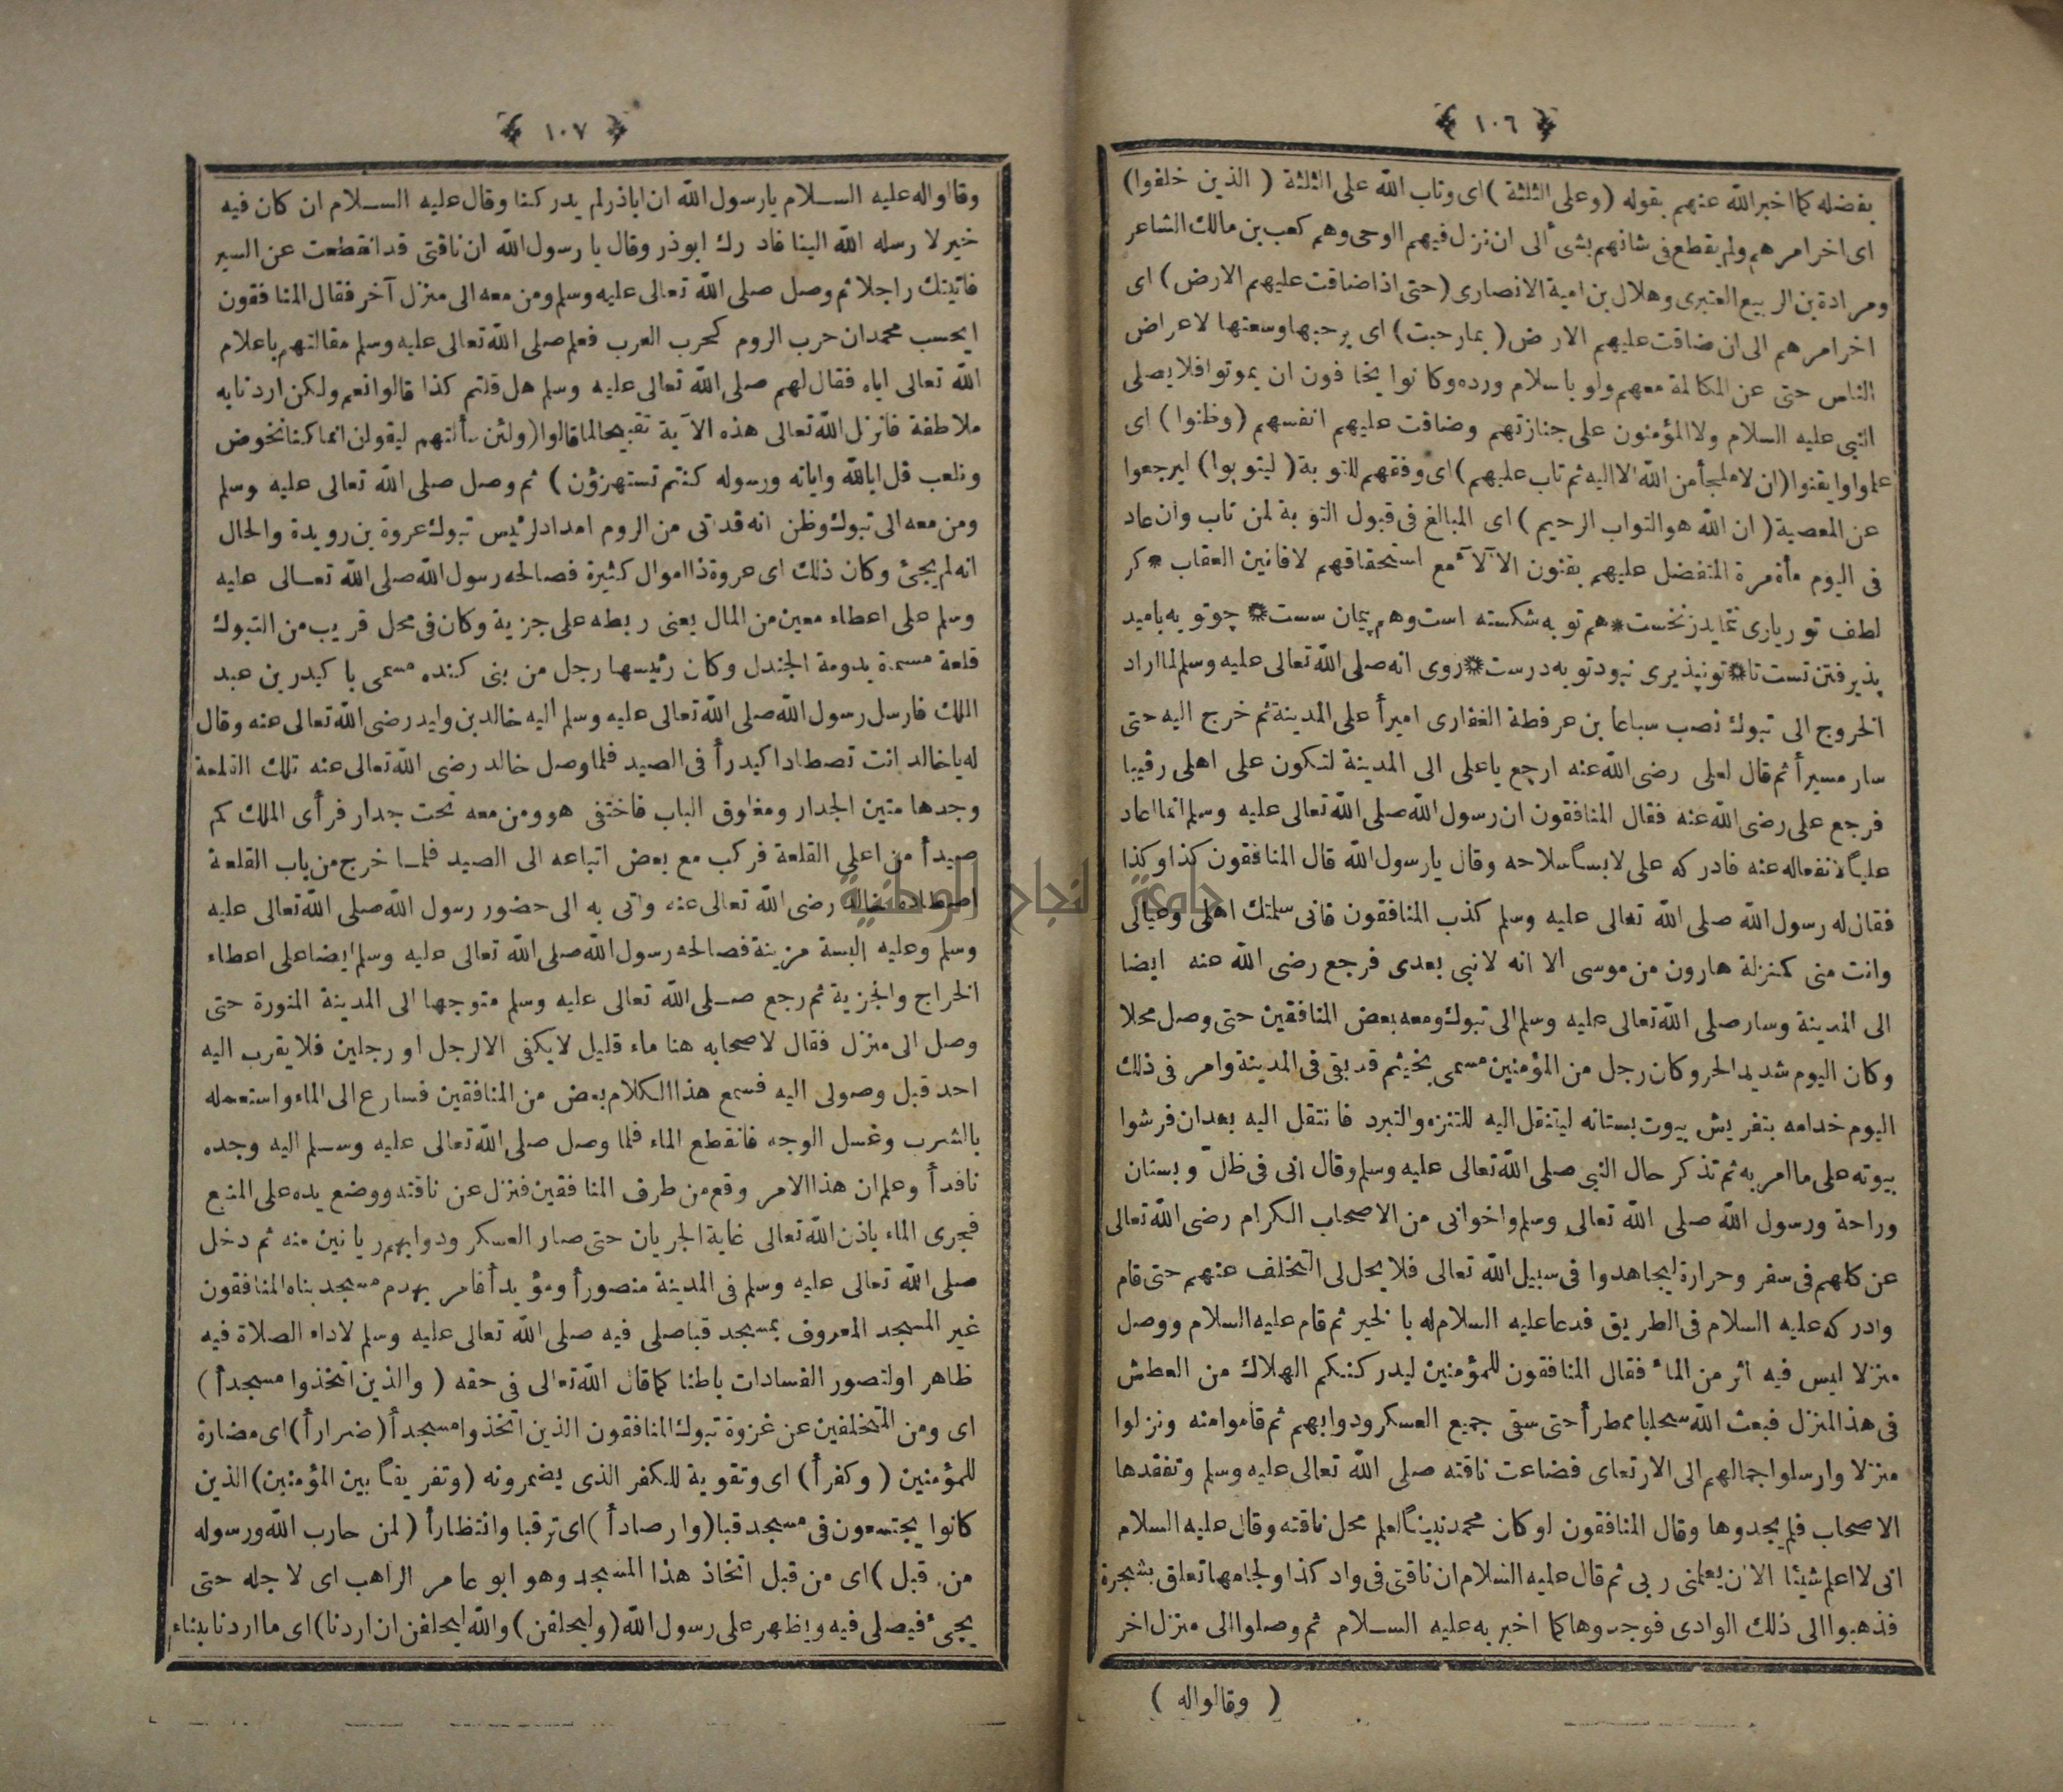 ﴿ ١٠٦ ﴾
بفضله كما اخبر الله عنهم بقوله (وعلى الثلثة) اى وتاب الله على الثلثة ( الذين خلفوا)
اى اخر امرهم ولم يقطع فى شانهم بشئ الى ان نزل فيهم الوحى وهم كعب بن مالك الشاعر
ومرادة بن الربيع العتبرى وهلال بن امية الانصارى (حتى اذا ضاقت عليهم الارض) اى
اخر امرهم الى ان ضاقت عليهم الارض ( بما رحبت) اى برحبها وسعتها لاعراض
الناس حتى عن المكالمة معهم ولو باسلام ورده وكانوا يخافون ان يموتوا فلا يصلى
النبى عليه السلام ولا المؤمنون على جنازتهم وضاقت عليهم انفسهم (وظنوا) اى
علموا وايقنوا (ان لا ملجأ من الله الا اليه ثم تاب عليهم) اى وفقهم للتوبة ( ليتوبوا) ليرجعوا
عن المعصية ( ان الله هو التواب الرحيم ) اى المبالغ فى قبول التوبة لمن تاب وان عاد
فى اليوم مأة مرة المتفضل عليهم بفنون الآلآء مع استحقاقهم لافانين العقاب * كر
لطف تو ريارى ننمايد زنخست * هم توبه شكسته است وهم پيمان سست * چو توبه باميد
پذيرفتن تست تا * تو نپذيرى نبود توبه درست * روى انه صلى الله تعالى عليه وسلم لما اراد
الخروج الى تبوك نصب سباعا بن عرفطة الغفارى اميرأ على المدينة ثم خرج اليه حتى
سار مسيرأ ثم قال لعلى رضى الله عنه ارجع ياعلى الى المدينة لتكون على اهلى رقيبا
فرجع على رضى الله عنه فقال المنافقون ان رسول الله صلى الله تعالى عليه وسلم انما اعاد
علياً لانفعاله عنه فادركه على لابساً سلاحه وقال يارسول الله قال المنافقون كذا وكذا
فقال له رسول الله صلى الله تعالى عليه وسلم كذب المنافقون فانى سلمتك اهلى وعيالى
وانت منى كمنزلة هارون من موسى الا انه لا نبى بعدى فرجع رضى الله عنه ايضا
الى المدينة وسار صلى الله تعالى عليه وسلم الى تبوك ومعه بعض المنافقين حتى وصل محلا
وكان اليوم شديد الحر وكان رجل من المؤمنين مسمى بخيثم قد بقى فى المدينة وامر فى ذلك
اليوم خدامه بتفريش بيوت بستانه لينتقل اليه للتنزه والتبرد فانتقل اليه بعد ان فرشوا
بيوته على ما امر به ثم تذكر حال النبى صلى الله تعالى عليه وسلم وقال انى فى ظلّ وبستان
وراحة ورسول الله صلى الله تعالى وسلم واخوانى من الاصحاب الكرام رضى الله تعالى
عن كلهم فى سفر وحرارة ليجاهدوا فى سبيل الله تعالى فلا يحل لى التخلف عنهم حتى قام
وادركه عليه السلام فى الطريق فدعا عليه السلام له بالخير ثم قام عليه السلام ووصل
منزلا ليس فيه اثر من الماء فقال المنافقون للمؤمنين ليدركنكم الهلاك من العطش
فى هذ المنزل فبعث الله سحابا ممطرأ حتى سقى جميع العسكر ودوابهم ثم قاموا منه ونزلوا
منزلا وارسلوا جمالهم الى الارتعاى فضاعت ناقته صلى الله تعالى عليه وسلم وتفقدها
الاصحاب فلم يجدوها وقال المنافقون لو كان محمد نبيناً لعلم محل ناقته وقال عليه السلام
انى لا اعلم شيئا الا ان يعلمنى ربى ثم قال عليه السلام ان ناقتى فى واد كذا ولجامها تعلق بشجرة
فذهبوا الى ذلك الوادى فوجدوها كما اخبر به عليه السلام ثم وصلوا الى منزل اخر
( وقالواله )
﴿ ١٠٧ ﴾
وقالواله عليه السلام يارسول الله ان اباذر لم يدركنا وقال عليه السلام ان كان فيه
خير لا رسله الله الينا فادرك ابوذر وقال يا رسول الله ان ناقتى قد انقطعت عن السير
فاتيتك راجلا ثم وصل صلى الله تعالى عليه وسلم ومن معه الى منزل آخر فقال المنافقون
ايحسب محمد ان حرب الروم كحرب العرب فعلم صلى الله تعالى عليه وسلم مقالتهم باعلام
الله تعالى اياه فقال لهم صلى الله تعالى عليه وسلم هل قلتم كذا قالوا نعم ولكن اردنا به
ملاطفة فانزل الله تعالى هذه الآية تقبيحا لما قالوا (ولئن سألتهم ليقولن انما كنا نخوض
ونلعب قل ابالله واياته ورسوله كنتم تستهزؤن) ثم وصل صلى الله تعالى عليه وسلم
ومن معه الى تبوك وظن انه قد اتى من الروم امداد لرئيس تبوك عروة بن رويدة والحال
انه لم يجئ وكان ذلك اى عروة ذا اموال كثيرة فصالحه رسول الله صلى الله تعالى عليه
وسلم على اعطاء معين من المال يعنى ربطه على جزية وكان فى محل قريب من التبوك
قلعة مسماة بدومة الجندل وكان رئيسها رجل من بنى كنده مسمى باكيدر بن عبد
الملك فارسل رسول الله صلى الله تعالى عليه وسلم اليه خالد بن وليد رضى الله تعالى عنه وقال
له ياخالد انت تصطاد اكيدرأ فى الصيد فلما وصل خالد رضى الله تعالى عنه تلك القلعة
وجدها متين الجدار ومغلوق الباب فاختفى هو ومن معه تحت جدار فرأى الملك كم
صيدأ من اعلى القلعة فركب مع بعض اتباعه الى الصيد فلما خرج من باب القلعة
اصطاده خالد رضى الله تعالى عنه واتى به الى حضور رسول الله صلى الله تعالى عليه
وسلم وعليه البسة مزينة فصالحه رسول الله صلى الله تعالى عليه وسلم ايضا على اعطاء
الخراج والجزية ثم رجع صلى الله تعالى عليه وسلم متوجها الى المدينة المنورة حتى
وصل الى منزل فقال لاصحابه هنا ماء قليل لا يكفى الا لرجل او رجلين فلا يقرب اليه
احد قبل وصولى اليه فسمع هذا الكلام بعض من المنافقين فسارع الى الماء واستعمله
بالشرب وغسل الوجه فانقطع الماء فلما وصل صلى الله تعالى عليه وسلم اليه وجده
نافدأ وعلم ان هذا الامر وقع من طرف المنافقين فنزل عن ناقته ووضع يده على المنبع
فجرى الماء باذن الله تعالى غاية الجريان حتى صار العسكر ودوابهم ريانين منه ثم دخل
صلى الله تعالى عليه وسلم فى المدينة منصورأ ومؤيدأ فامر بهدم مسجد بناه المنافقون
غير المسجد المعروف بمسجد قبا صلى فيه صلى الله تعالى عليه وسلم لاداء الصلاة فيه
ظاهر اولتصور الفسادات باطنا كما قال الله تعالى فى حقه ( والذين اتخذوا مسجدأ )
اى ومن المتخلفين عن غزوة تبوك المنافقون الذين اتخذوا مسجدأ (ضرارأ) اى مضارة
للمؤمنين ( وكفرأ) اى وتقوية للكفر الذى يضمرونه (وتفريقاً بين المؤمنين) الذين
كانوا يجتمعون فى مسجد قبا (وارصادأ ) اى ترقبا وانتظارأ ( لمن حارب الله ورسوله
من قبل ) اى من قبل اتخاذ هذا المسجد وهو ابو عامر الراهب اى لاجله حتى
يجئ فيصلى فيه ويظهر على رسول الله (وليحلفن) والله ليحلفن ان اردنا) اى ما اردنا ببناء
جامعة النجاح الوطنية